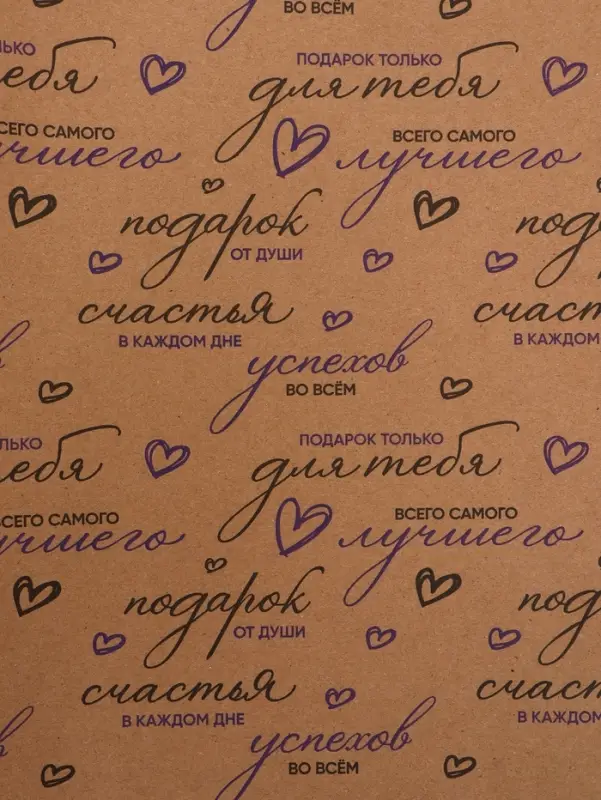 ВО ВСЁМ
ПОДАРОК ТОЛЬКО
для тебя
ВСЕГО САМОГО
лучшего
ВСЕГО САМОГО
лучшего
подарок
ОТ ДУШИ
счастья
В КАЖДОМ ДНЕ
В КАЖДОМ
успехов
ВО ВСЁМ
ПОДАРОК ТОЛЬКО
для тебя
ВСЕГО САМОГО
лучшего
ВСЕГО САМОГО
лучшего
подарок
ОТ ДУШИ
счастья
В КАЖДОМ ДНЕ
В КАЖДОМ
успехов
ВО ВСЁМ